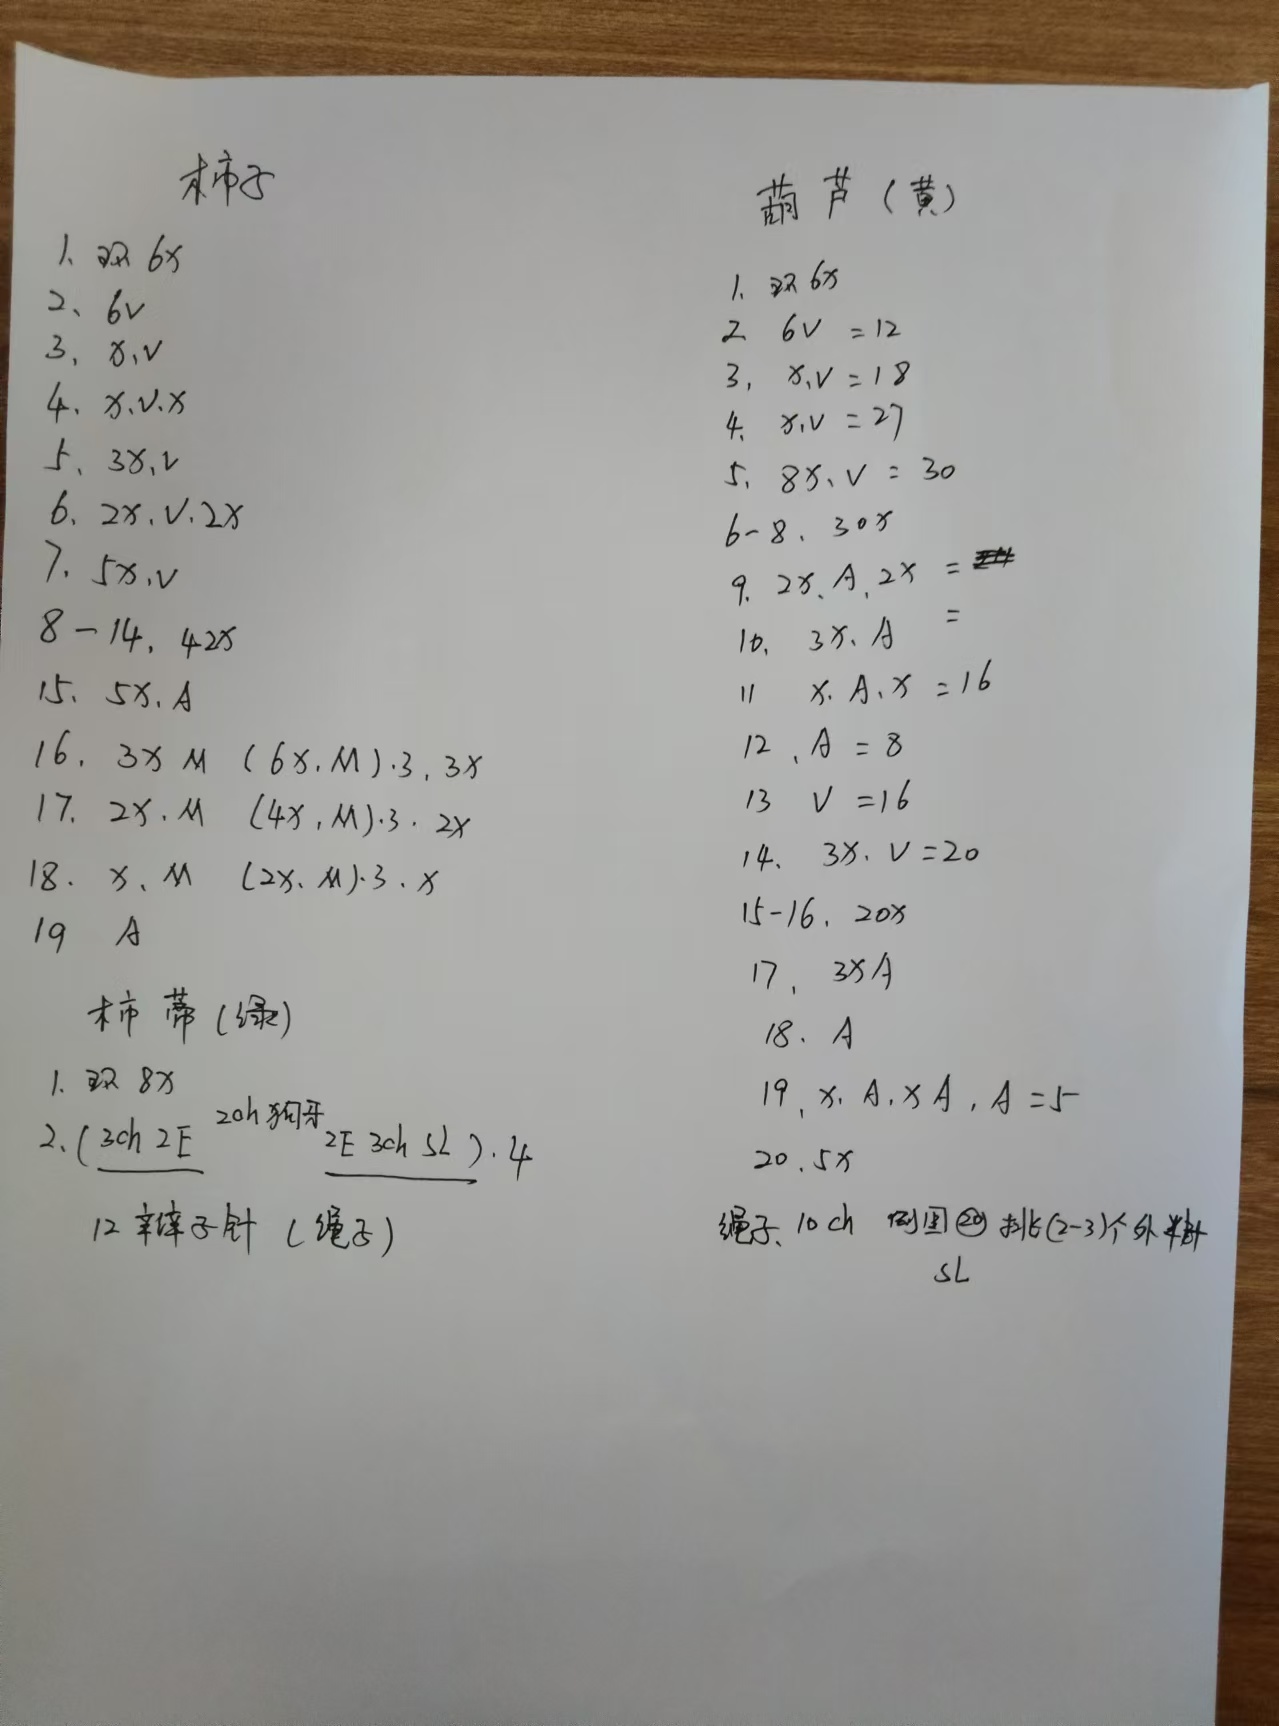 柿子
1、环 6x
2、6v
3、x,v
4、x.v.x
5、3x,v
6、2x.v.2x
7. 5x,v
8-14, 42x
15. 5x.A
16. 3x M (6x.M)·3, 3x
17. 2x.M (4x,M)·3. 2x
18. x、M (2x.M)·3.x
19 A
柿蒂(绿)
1. 环 8x
2.(3ch 2E 2ch狗牙 2E 3ch SL).4
12辫子针(绳子)
葫芦(黄)
1、环 6x
2 6V =12
3, x,v=18
4. x,v =27
5. 8x、V = 30
6-8、30x
9. 2x、A、2x =
10, 3x、A =
11 x.A、x =16
12、A = 8
13 V =16
14. 3x.V=20
15-16, 20x
17, 3xA
18. A
19, x.A,xA,A=5
20.5x
绳子、10ch 倒回⑳ 挑(2-3)个外半针
SL